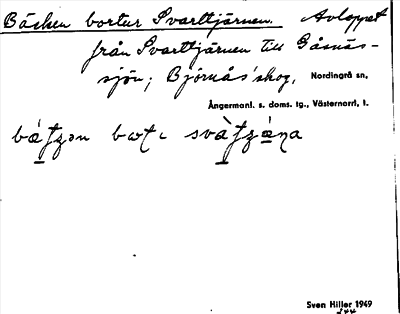 Bäcken bortur Svarttjärnen. Avloppet
från Svarttjärnen till Gåsnäs-
sjön; Björnås' skog, Nordingrå sn,
Ångermanl. s. doms. tg., Västernorrl. l.
Sven Hiller 1949